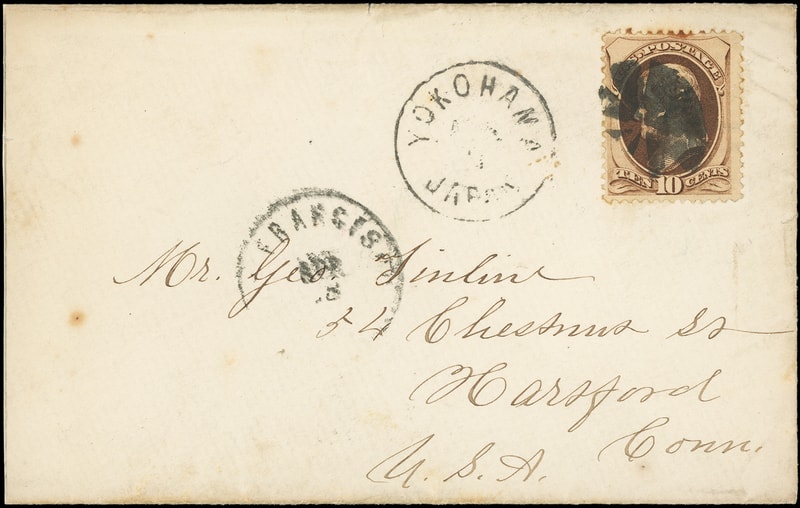 U.S. POSTAGE
TEN 10 CENTS
YOKOHAMA
JAPAN
FRANCISC
Mr. Geo. Sinline
54 Chestnut St
Hartford
Conn.
U. S. A.